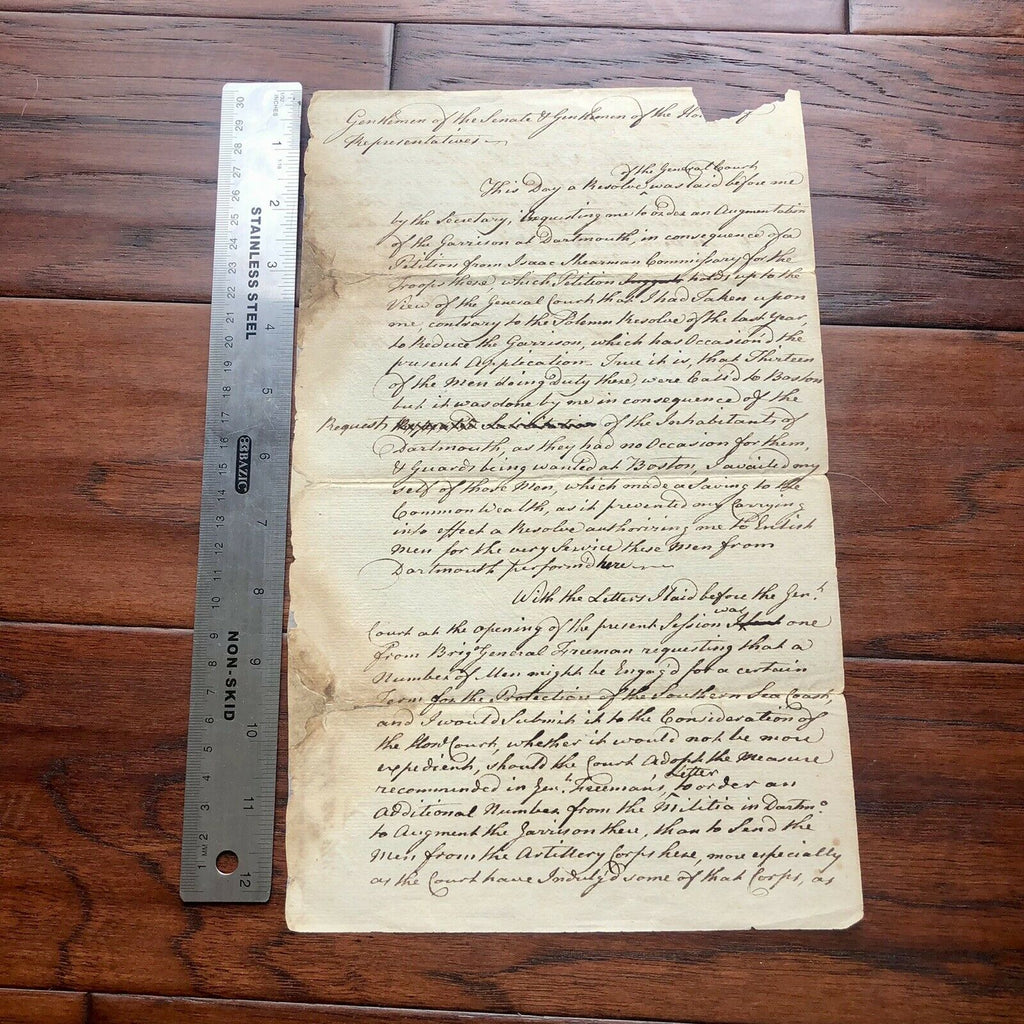 Gentlemen of the Senate & Gentlemen of the Ho of
Representatives
of the General Court
This Day a Resolve was laid before me
by the Secretary, requesting me to order an Augmentation
of the Garrison at Dartmouth, in consequence of a
Petition from Isaac Mearman Commissary for the
Troops there which Petition holds up to the
View of the General Court that I had Taken upon
me contrary to the Solemn Resolve of the last Year,
to Reduce the Garrison, which has Occasion'd the
present Application. True it is, that Thirteen
of the Men doing Duty there, were Call'd to Boston
but it was done by me in consequence of the
Request of the Inhabitants of
Dartmouth, as they had no Occasion for them,
& Guards being wanted at Boston, I availed my
self of those Men, which made a Saving to the
Common Wealth, as it prevented my Carrying
into effect a Resolve authorizing me to Enlist
Men for the very Service these Men from
Dartmouth perform'd here
With the Letters I laid before the Genl.
Court at the opening of the present Session was one
from Brigr General Freeman requesting that a
Number of Men might be Engag'd for a certain
Term for the Protection of the Southern Sea Coast,
and I would Submit it to the Consideration of
the Honl Court, whether it would not be more
expedient, should the Court adopt the Measure
recommended in Genl. Freeman's Letter, to order an
Additional Number from the Militia in Dartmo.
to Augment the Garrison there, than to Send the
Men from the Artillery Corps here, more especially
as the Court have Indulg'd some of that Corps, as
STAINLESS STEEL
BAZIC
NON-SKID
INCHES
1
2
3
4
5
6
7
8
9
10
11
12
30
29
28
27
26
25
24
23
22
21
20
19
18
17
16
15
14
13
12
11
10
9
8
7
6
5
4
3
2
1
MM